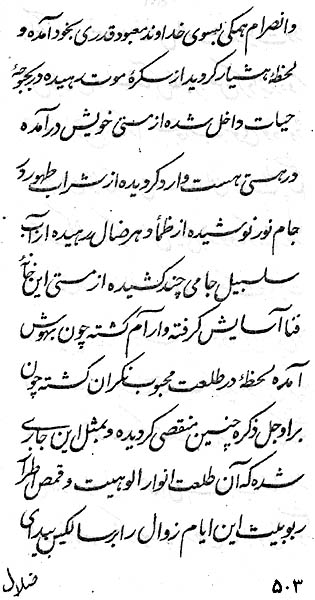 وانصرام همکی بسوی خداوند معبود قدری بخود آمده و
لحظهٔ هشیار کردیده از سکرهٔ موت رهیده در بحبوحهٔ
حیات داخل شده از مستی خویش در آمده
در هستی هست وارد کردیده از شراب طهور و
جام نور نوشیده از ظمأ و هر ضلال رهیده از آب
سلسبیل جامی چند کشیده از مستی این خانهٔ
فنا آسایش کرفته و آرام کشته چون بهوش
آمده لحظهٔ در طلعت محبوب نکران کشته چون
براو جل ذکره چنین منقضی کردیده و بمثل این جاری
شده که آن طلعت انوار الوهیت و قمص
ربوبیت این ایام زوال را بر سالکین بیدای
ضلال
۵۰۳